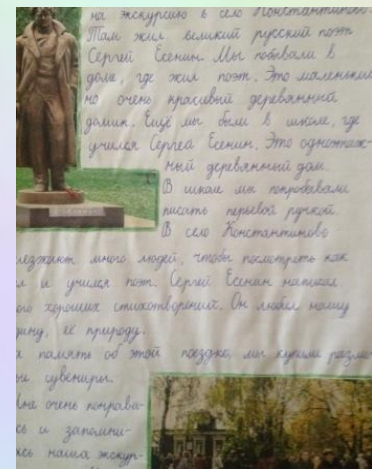 на экскурсию в село Константиново.
Там жил великий русский поэт
Сергей Есенин. Мы побывали в
доме, где жил поэт. Это маленький
но очень красивый деревянный
домик. Ещё мы были в школе, где
учился Сергей Есенин. Это одноэтаж-
ный деревянный дом.
В школе мы попробовали
писать перьевой ручкой.
В село Константиново
езжают много людей, чтобы посмотреть как
л и учился поэт. Сергей Есенин написал
ого хороших стихотворений. Он любил нашу
дину, её природу.
а память об этой поездке, мы купили разли-
ые сувениры.
Мне очень понрави-
сь и запомни-
сь наша экскур-